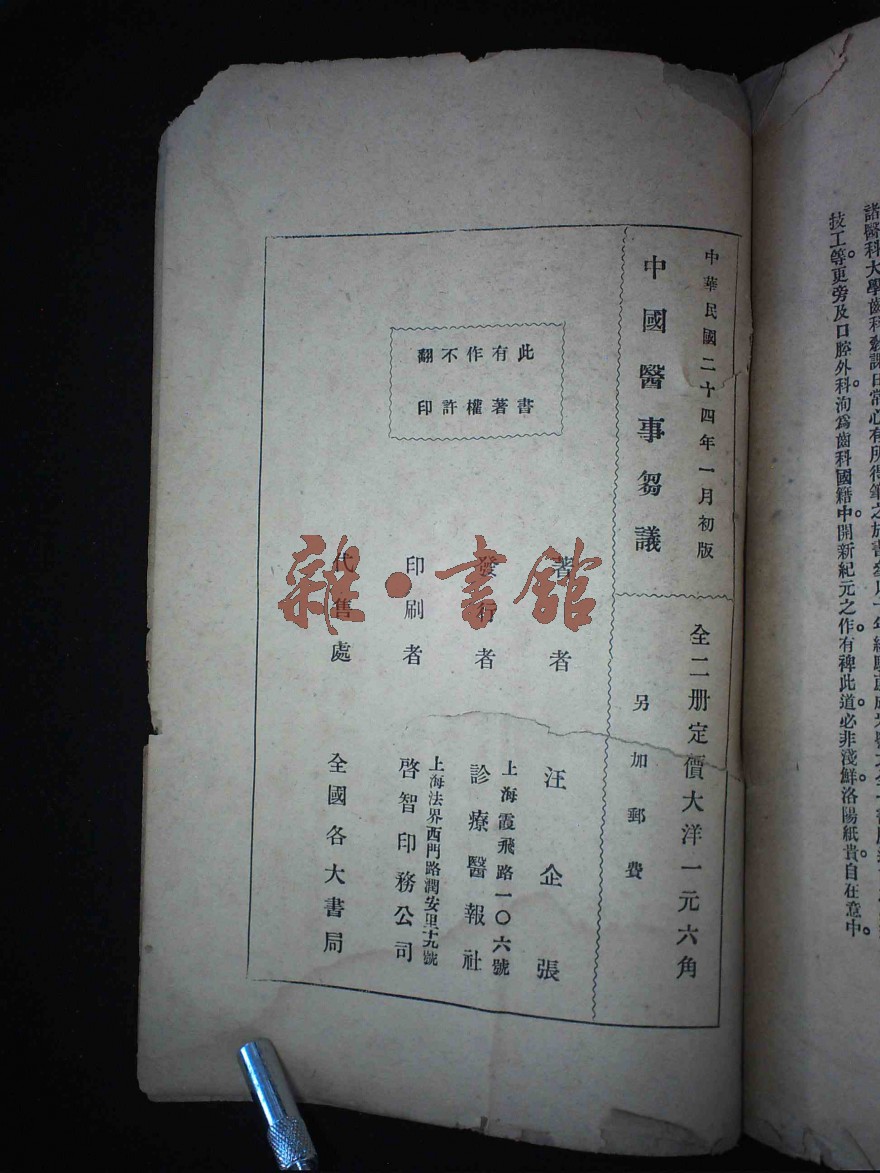 諸醫科大學齒科
技工等更旁及口腔外科洵爲齒科國籍中開新紀元之作有裨此道必非淺鮮洛陽紙貴自在意中。
中華民國二十四年一月初版
中國醫事芻議
全二册定價大洋一元六角
另加郵費
此書
有著
作權
不許
翻印
著者 汪企張
上海霞飛路一〇六號
發行者 診療醫報社
上海法界西門路潤安里十九號
印刷者 啓智印務公司
代售處 全國各大書局
雜·書館